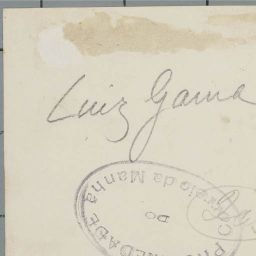 Luiz Gama
PROPRIEDADE
DO
Correio da Manhã